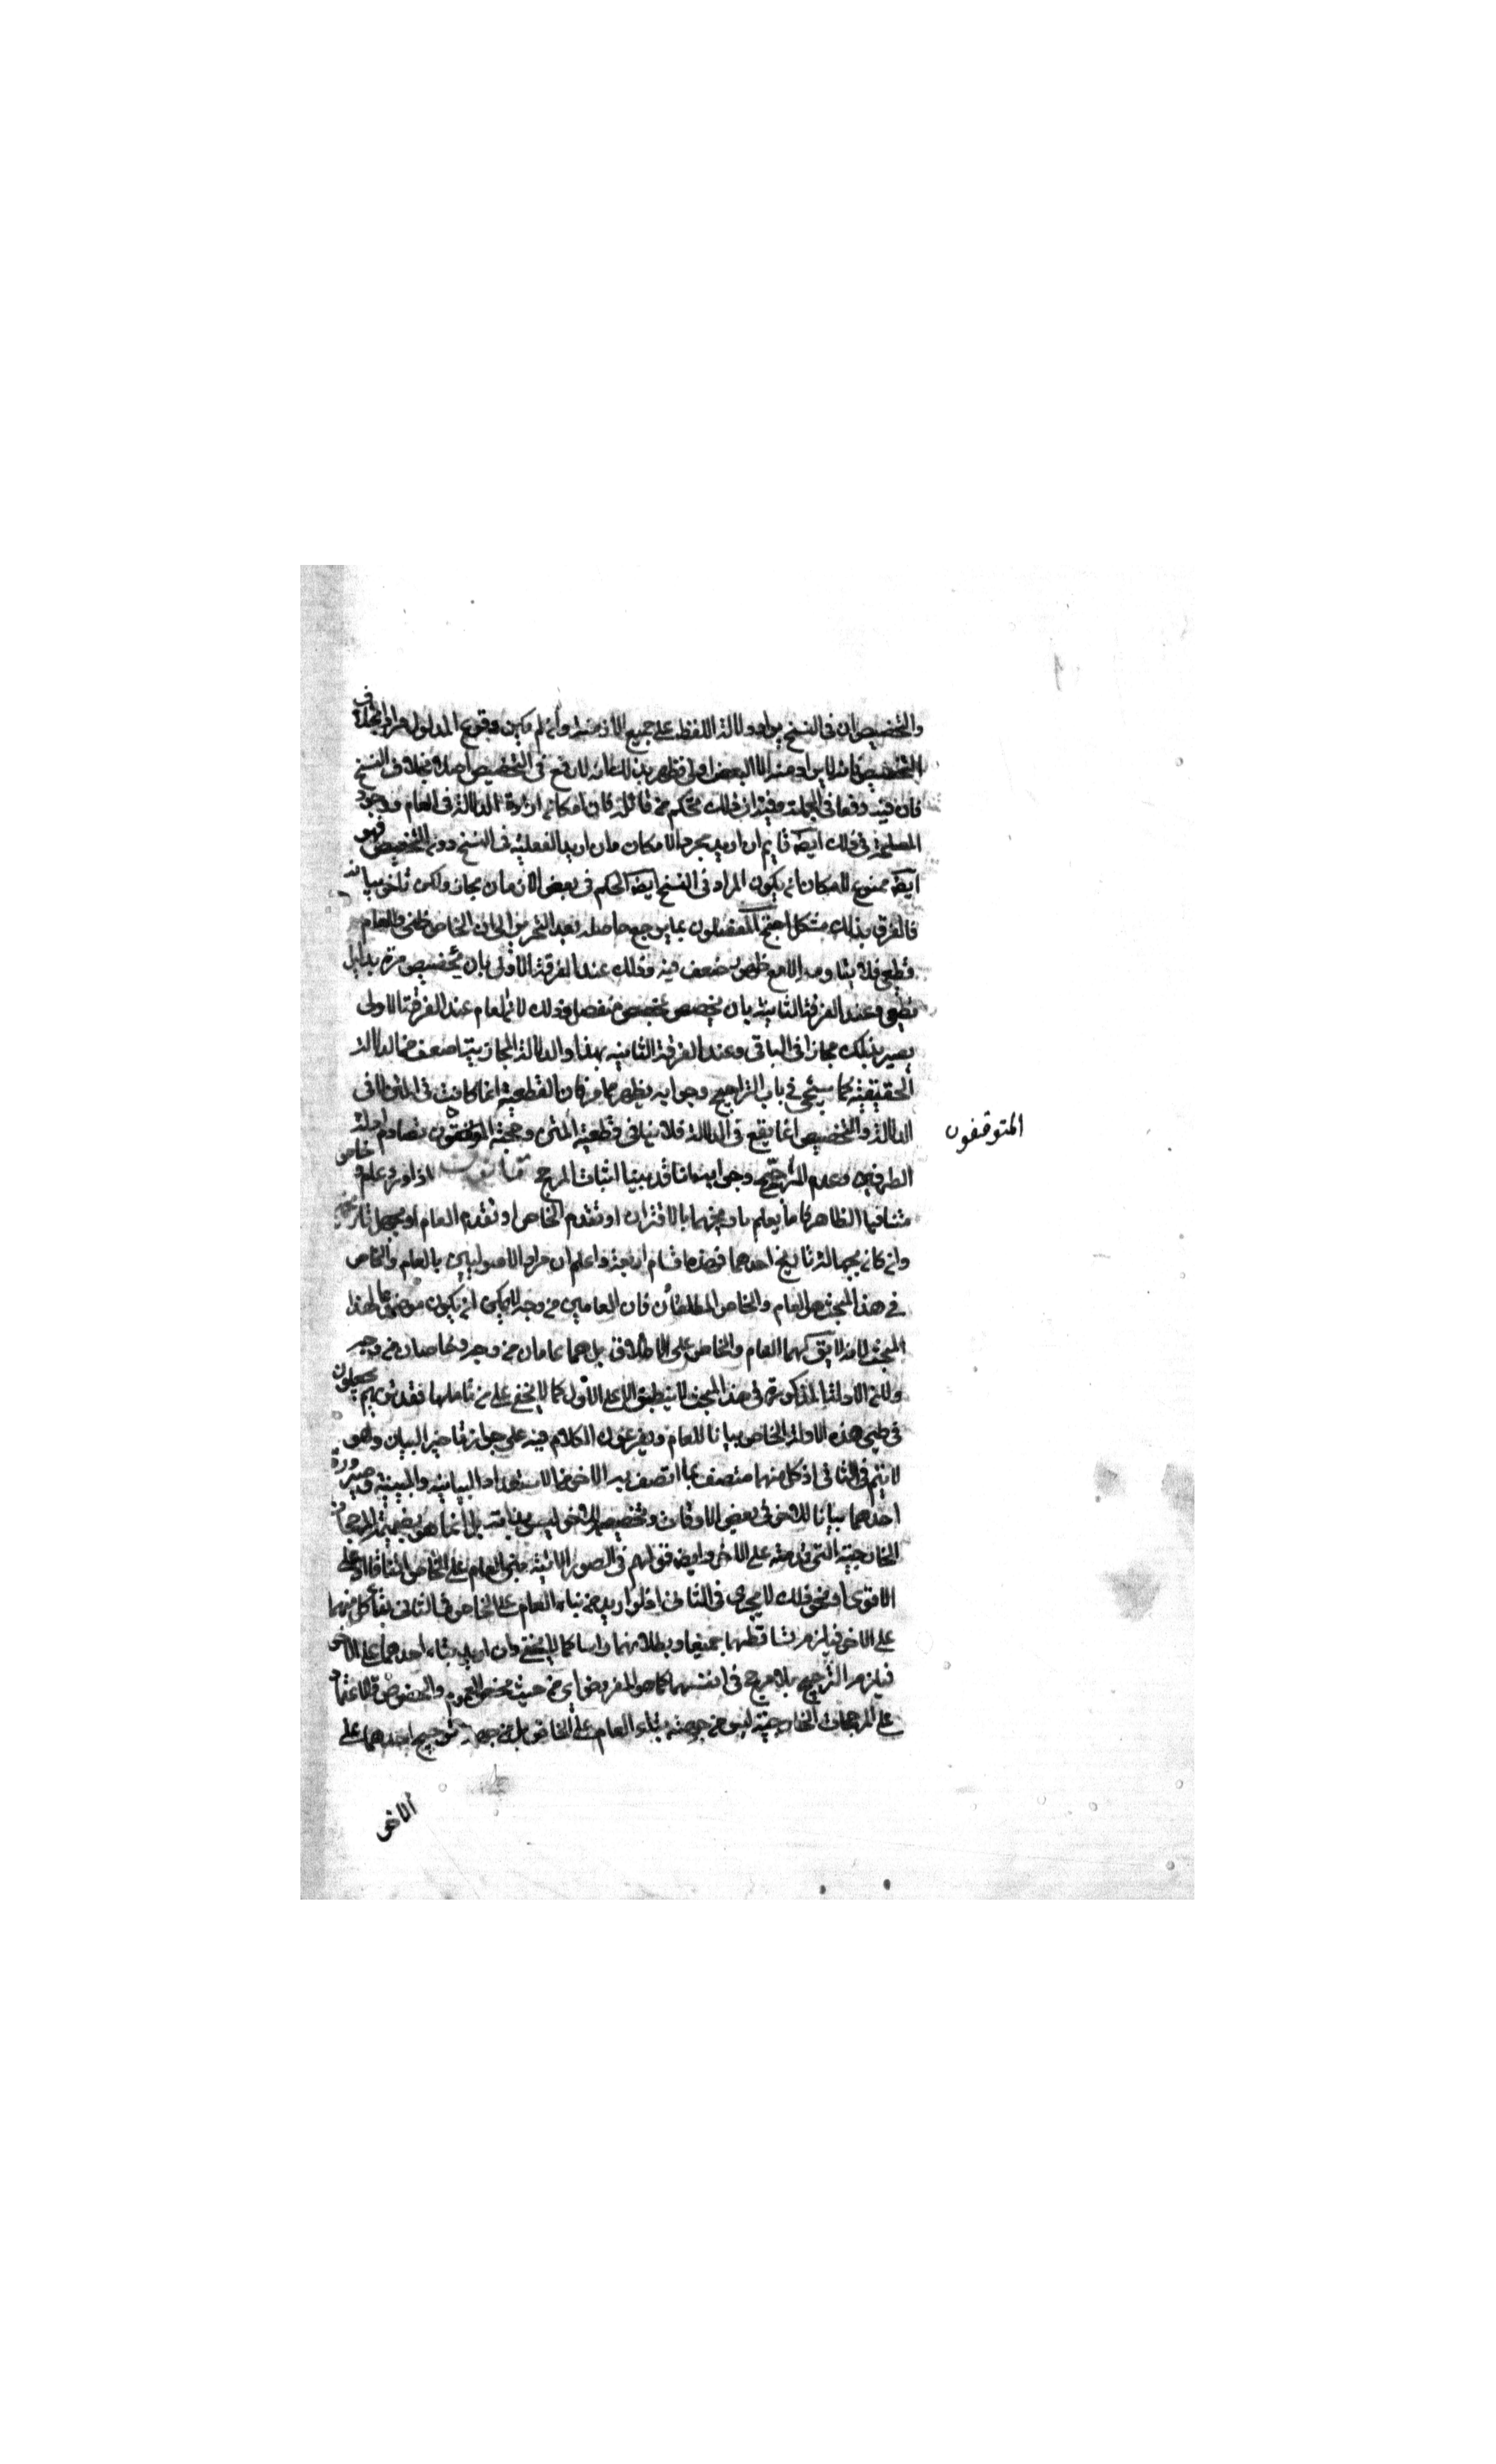 والتخصيص ان في النسخ يراد دلالة اللفظ على جميع الازمنة وان لم يكن وقوع المدلول مرادا بخلاف
التخصيص فانه لا يراد منه الا البعض اولى فظهر بذلك انه لا رفع في التخصيص اصلا بخلاف النسخ
فان فيه دفعا في الجملة وفيه ان ذلك تحكم من قائله فان امكان ارادة الدلالة في العام ووجود
المصلحة في ذلك ايضا قايم ان اريد مجرد الامكان وان اريد الفعلية في النسخ دون التخصيص فهو
ايضا ممنوع لامكان ان يكون المراد في النسخ ايضا الحكم في بعض الازمان مجازا ولكن تاخر بيانه
فالفرق بذلك مشكل احتج المفصلون بما يرجع حاصله بعد التحرير الى ان الخاص ظني والعام
قطعي فلا يقاومه الا مع ظهور ضعف فيه وذلك عند الفرقة الاولى بان يخصص مرة بدليل
قطعي وعند الفرقة الثانية بان يخصص بمخصص منفصل وذلك لان العام عند الفرقة الاولى
يصير بذلك مجازا في الباقي وعند الفرقة الثانية بهذا والدلالة المجازية اضعف من الدلالة
الحقيقية كما سيجئ في باب التراجيح وجوابه يظهر مما مر فان القطعية انما كانت في المتن لا في
الدلالة والتخصيص انما يقع في الدلالة فلا ينافي قطعية المتن وحجة الموقفون تصادم ادلة
المتوقفون
الطرفين وعدم الترجيح وجوابه اننا قد بينا اثبات المرجح قانون اذا ورد عام وخاص
متنافيا الظاهر فاما يعلم تاريخهما بالاقتران او تقدم الخاص او تقدم العام او يجهل تاريخهما
وان كان بجهالة تاريخ احدهما فهذه اقسام اربعة واعلم ان مراد الاصوليين بالعام والخاص
في هذا المبحث هو العام والخاص المطلقان فان العامين من وجه لا يمكن ان يكون موضوعا لهذا
المبحث لانه لا يق لهما العام والخاص على الاطلاق بل هما عامان من وجه وخاصان من وجه
ولان الادلة المذكورة في هذا المبحث لا ينطبق الا على الاول كما لا يخفى على من تاملها فقد تريهم يجعلون
في طي هذه الادلة الخاص بيانا للعام ويفرعون الكلام فيه على جواز تاخير البيان وهو
لا يتم في الثاني اذ كل منهما متصف بما اتصف به الاخر من الاستعداد البيانية والمبينية وصيرورة
احدهما بيانا للاخر في بعض الاوقات وتخصيصه للاخر ليس بذاته بل انما هو بضميمة المرجحات
الخارجية التي قدمته على الاخر وايضا قولهم في الصور الاتية يبنى العام على الخاص اتفاقا او على
الاقوى او نحو ذلك لا يجري في الثاني اذ لو اريد من بناء العام على الخاص في الثاني بناء كل منهما
على الاخر فيلزم تساقطهما جميعا وبطلانهما راسا كما لا يخفى وان اريد بناء احدهما على الاخر
فيلزم الترجيح بلا مرجح في انفسهما كما هو المفروض اي من حيث محض العموم والخصوص والاعتماد
على المرجحات الخارجية ليس من جهة بناء العام على الخاص بل من جهة ترجيح احدهما على
الاخر